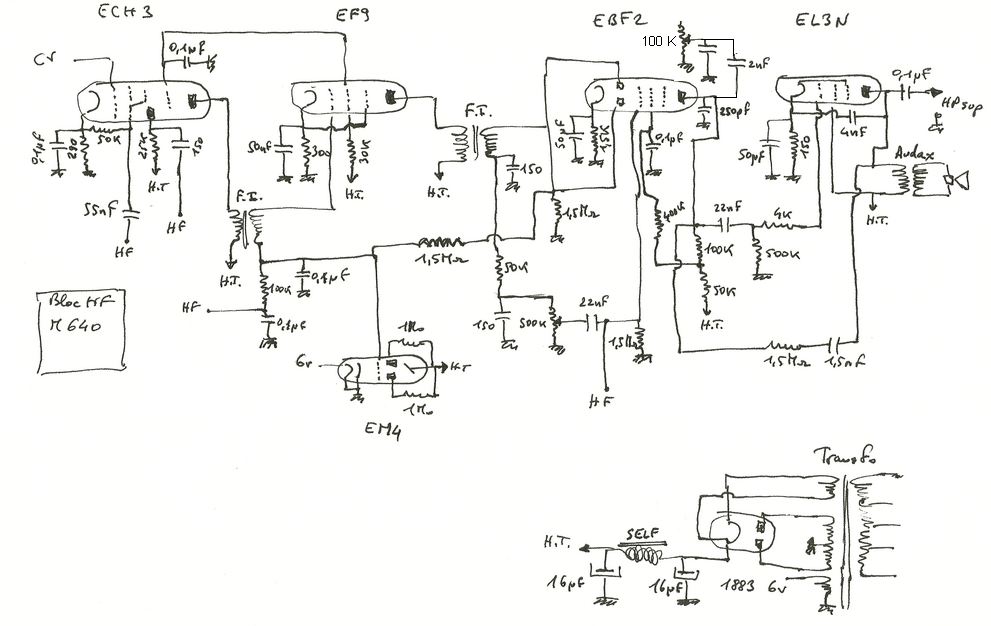 ECH3
EF9
EBF2
EL3N
100 K
CV
0,1µF
2nF
0,1µF
HP sup
250pF
0,1µF
50K
250
150
50nF
300
30K
F.I.
150
50µF
1,5K
4nF
50µF
150
Audax
H.T.
H.T.
H.T.
H.T.
55nF
HF
HF
F.I.
1,5MΩ
400K
22nF
4K
100K
500K
1,5MΩ
50K
50K
H.T.
H.T.
100K
0,1µF
HF
0,1µF
22nF
150
500K
1,5MΩ
1,5MΩ
1,5nF
Bloc HF
M 640
1MΩ
6v
H.T
1MΩ
HF
EM4
Transfo
SELF
H.T.
16µF
16µF
1883
6v